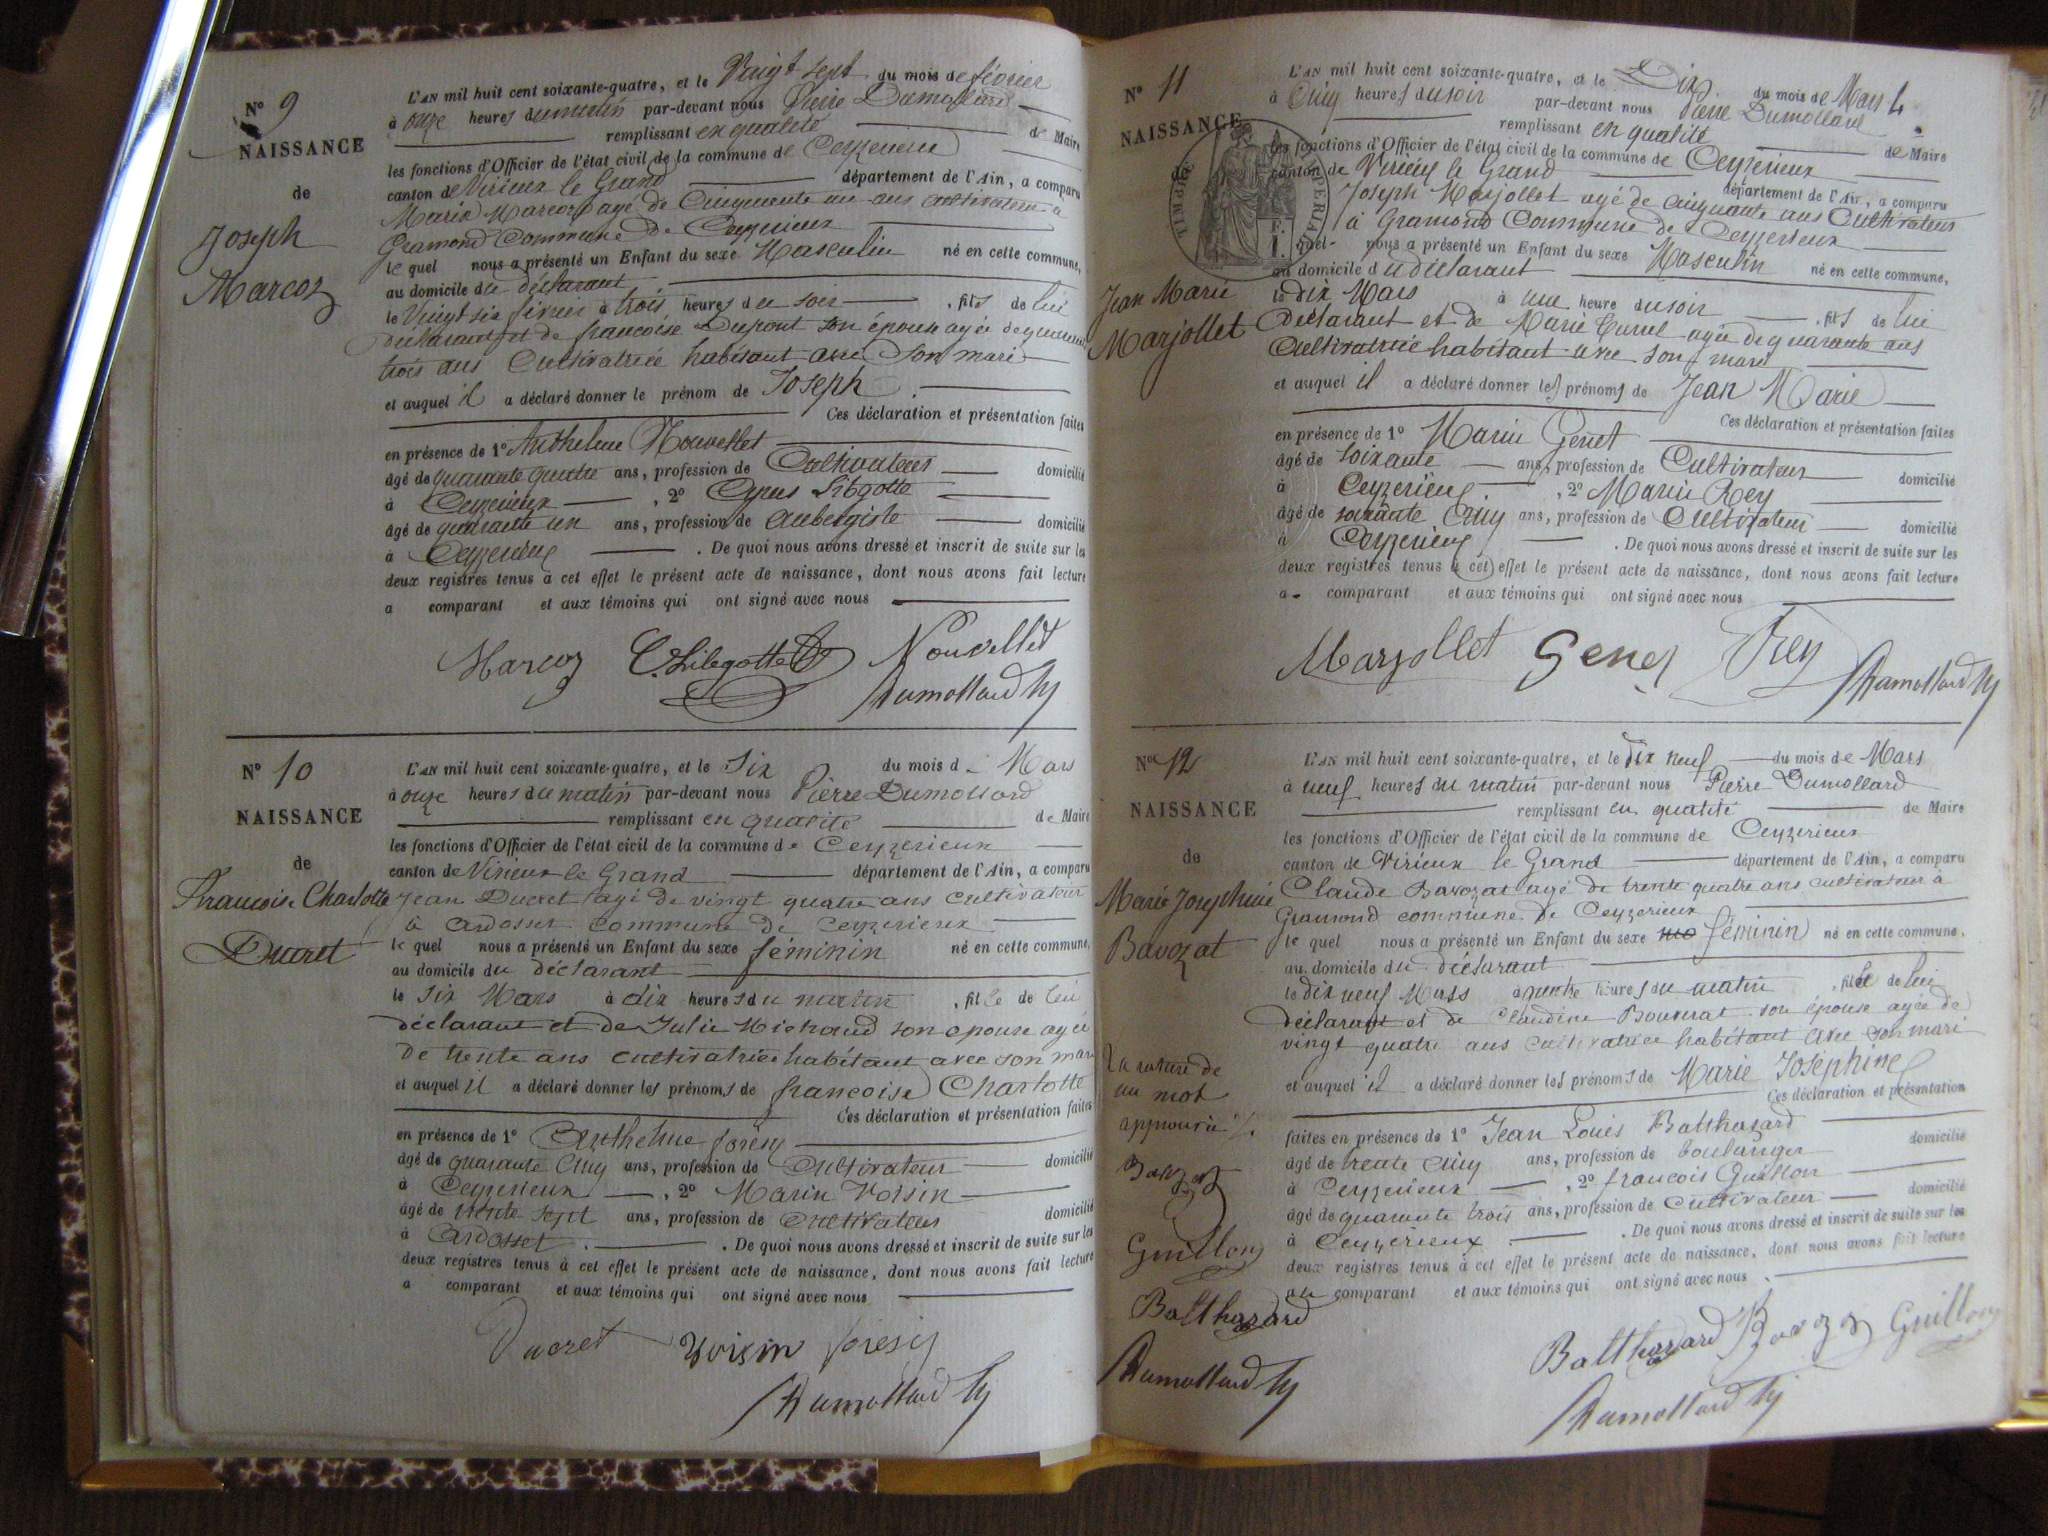 N° 9
NAISSANCE
de
Joseph
Marcoz
L'AN mil huit cent soixante-quatre, et le Vaigt sept du mois de février
à onze heures du matin par-devant nous Pierre Dumollard
remplissant en qualité de Maire
les fonctions d'Officier de l'état civil de la commune de Ceyzerieu
canton de Virieux le Grand département de l'Ain, a comparu
Marin Marcoz agé de Cinquante un ans cultivateur à
Gramond Commune de Ceyzerieux
le quel nous a présenté un Enfant du sexe Masculin né en cette commune,
au domicile du déclarant
le Vingt six février à trois heures du soir , fils de lui
déclarant et de francoise Dupont son épouse agée de quarante
trois ans Cultivatrice habitant avec son mari
et auquel il a déclaré donner le prénom de Joseph
Ces déclaration et présentation faites
en présence de 1° Anthelme Nouvellet
âgé de quarante quatre ans, profession de Cultivateur domicilié
à Ceyzerieux , 2° Cyrus Libgotte
âgé de quarante un ans, profession de aubergiste domicilié
à Ceyzerieux . De quoi nous avons dressé et inscrit de suite sur les
deux registres tenus à cet effet le présent acte de naissance, dont nous avons fait lecture
a comparant et aux témoins qui ont signé avec nous
Marcoz C. Libgotte Nouvellet
Dumollard
N° 10
NAISSANCE
de
Francoise Charlotte
Ducret
L'AN mil huit cent soixante-quatre, et le Six du mois d Mars
à onze heures du matin par-devant nous Pierre Dumollard
remplissant en qualité de Maire
les fonctions d'Officier de l'état civil de la commune de Ceyzerieux
canton de Virieux le Grand département de l'Ain, a comparu
Jean Ducret agé de vingt quatre ans cultivateur
à Ardosset commune de Ceyzerieux
le quel nous a présenté un Enfant du sexe féminin né en cette commune,
au domicile du déclarant
le six Mars à dix heures du matin , fille de lui
déclarant et de Julie Michaud son epouse agée
de trente ans cultivatrice habitant avec son mari
et auquel il a déclaré donner les prénoms de francoise Charlotte
Ces déclaration et présentation faites
en présence de 1° Anthelme
âgé de quarante cinq ans, profession de Cultivateur domicilié
à Ceyzerieux , 2° Marin Voisin
âgé de trente sept ans, profession de cultivateur domicilié
à Ardosset . De quoi nous avons dressé et inscrit de suite sur les
deux registres tenus à cet effet le présent acte de naissance, dont nous avons fait lecture
a comparant et aux témoins qui ont signé avec nous
Ducret Voisin
Dumollard
N° 11
NAISSANCE
de
Jean Marie
Marjollet
TIMBRE IMPERIAL
1 F.
L'AN mil huit cent soixante-quatre, et le Dix du mois de Mars
à Cinq heures du soir par-devant nous Pierre Dumollard
remplissant en qualité de Maire
les fonctions d'Officier de l'état civil de la commune de Ceyzerieux
canton de Virieu le Grand département de l'Ain, a comparu
Joseph Marjollet agé de cinquante ans Cultivateur
à Gramond Commune de Ceyzerieux
quel nous a présenté un Enfant du sexe Masculin né en cette commune,
au domicile du déclarant
le dix Mars à une heure du soir , fils de lui
déclarant et de Marie agée de quarante ans
Cultivatrice habitant avec son mari
et auquel il a déclaré donner les prénoms de Jean Marie
Ces déclaration et présentation faites
en présence de 1° Marin Genet
âgé de soixante ans, profession de Cultivateur domicilié
à Ceyzerieux , 2° Marin Rey
âgé de soixante Cinq ans, profession de Cultivateur domicilié
à Ceyzerieux . De quoi nous avons dressé et inscrit de suite sur les
deux registres tenus à cet effet le présent acte de naissance, dont nous avons fait lecture
a comparant et aux témoins qui ont signé avec nous
Marjollet Genet Rey
Dumollard
N° 12
NAISSANCE
de
Marie Josephine
Bavozat
L'AN mil huit cent soixante-quatre, et le dix neuf du mois de Mars
à neuf heures du matin par-devant nous Pierre Dumollard
remplissant en qualité de Maire
les fonctions d'Officier de l'état civil de la commune de Ceyzerieux
canton de Virieux le Grand département de l'Ain, a comparu
Claude Bavozat agé de trente quatre ans cultivateur à
Gramond commune de Ceyzerieux
le quel nous a présenté un Enfant du sexe féminin né en cette commune,
au domicile du déclarant
le dix neuf Mars à heures du matin , fille de lui
déclarant et de Claudine Bouvrat son épouse agée de
vingt quatre ans cultivatrice habitant avec son mari
et auquel il a déclaré donner les prénoms de Marie Joséphine
Ces déclaration et présentation
faites en présence de 1° Jean Louis Balthazard
âgé de trente cinq ans, profession de boulanger domicilié
à Ceyzerieux , 2° francois Guillon
âgé de quarante trois ans, profession de Cultivateur domicilié
à Ceyzerieux . De quoi nous avons dressé et inscrit de suite sur les
deux registres tenus à cet effet le présent acte de naissance, dont nous avons fait lecture
au comparant et aux témoins qui ont signé avec nous
La rature de
un mot
approuvée
Bavozat
Guillon
Balthazard
Dumollard
Balthazard Bavoza Guillon
Dumollard